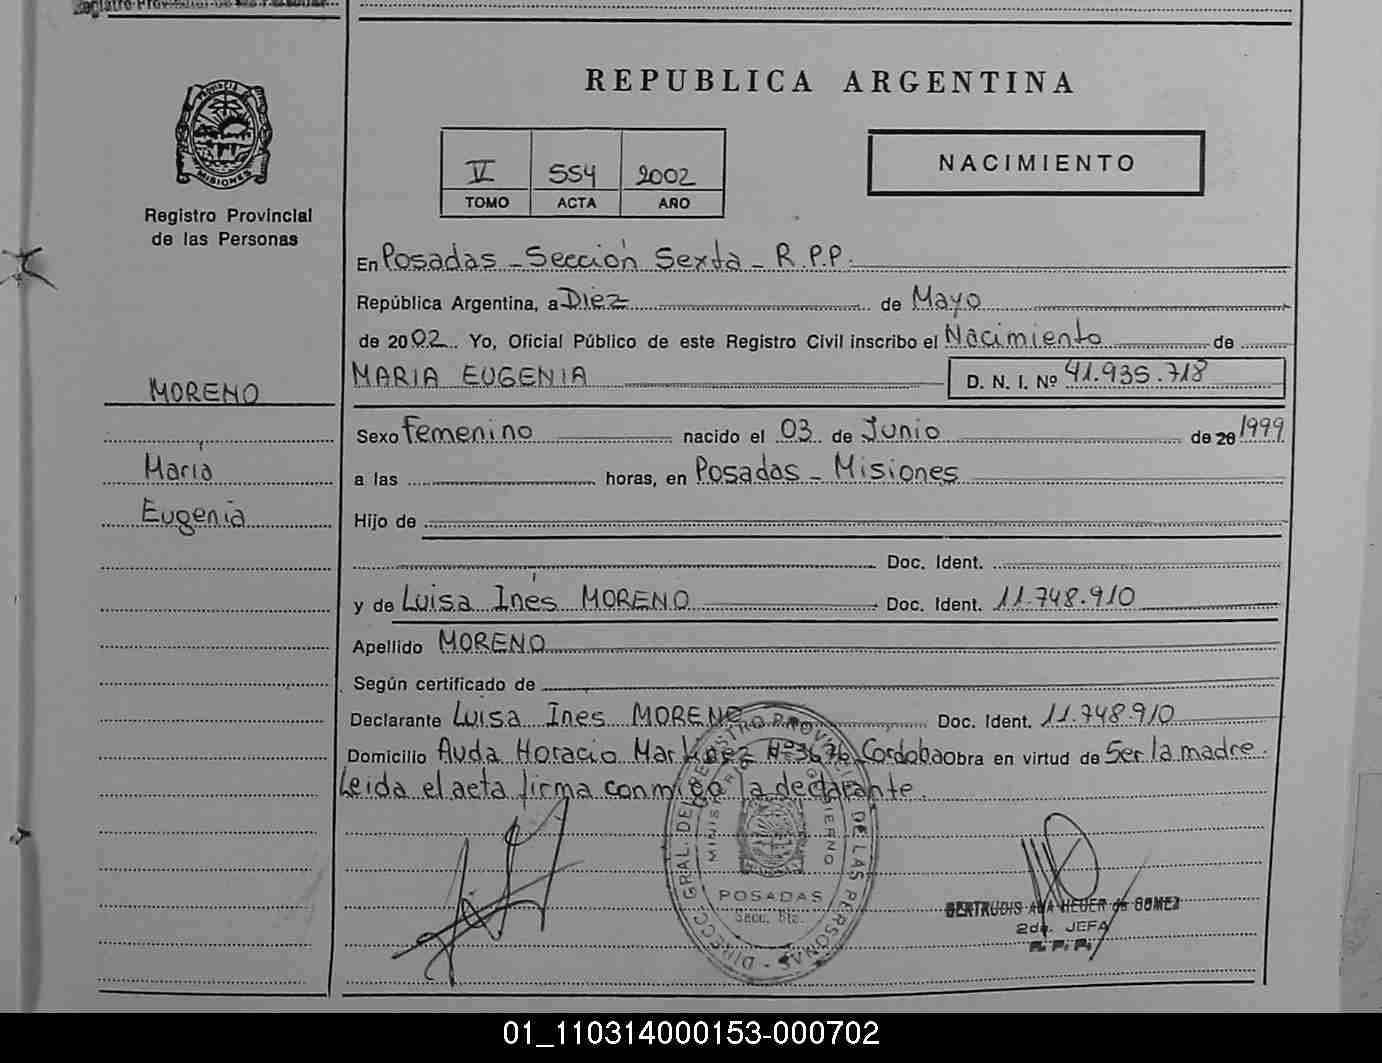 Registro Provincial de las Personas
REPUBLICA ARGENTINA
PROVINCIA DE
MISIONES
Registro Provincial
de las Personas
V 554 2002
TOMO ACTA AÑO
NACIMIENTO
En Posadas - Sección Sexta - R.P.P.
República Argentina, a Diez de Mayo
de 2002 Yo, Oficial Público de este Registro Civil inscribo el Nacimiento de
MARIA EUGENIA D. N. I. Nº 41.935.718
MORENO
María
Eugenia
Sexo Femenino nacido el 03 de Junio de 20 1999
a las horas, en Posadas - Misiones
Hijo de
Doc. Ident.
y de Luisa Inés MORENO Doc. Ident. 11.748.910
Apellido MORENO
Según certificado de
Declarante Luisa Ines MORENO Doc. Ident. 11.748.910
Domicilio Avda Horacio Martinez Nº 3676 Cordoba Obra en virtud de Ser la madre.
Leida el acta firma conmigo la declarante.
DIRECC. GRAL. DEL REGISTRO PROVINCIAL DE LAS PERSONAS
MINISTERIO GOBIERNO
POSADAS
Secc. 6ta.
GERTRUDIS ANA HEUER de GOMEZ
2da. JEFA
R. P. P.
01_110314000153-000702